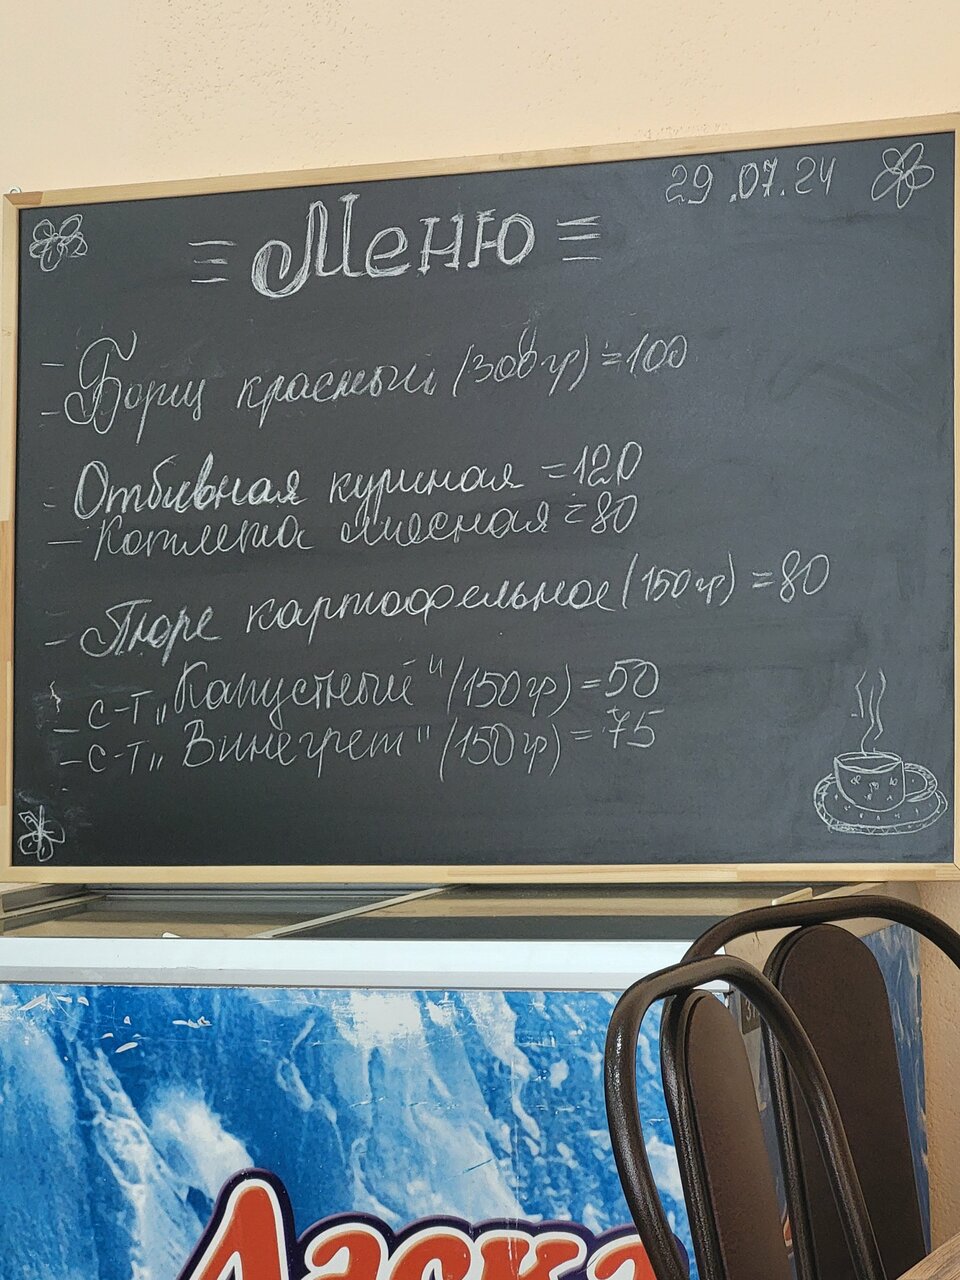 29.07.24
= Меню =
- Борщ красный (300гр) = 100
- Отбивная куриная = 120
- Котлета мясная = 80
- Пюре картофельное (150гр) = 80
- с-т „Капустный" (150гр) = 50
- с-т „Винегрет" (150гр) = 75
Ласка